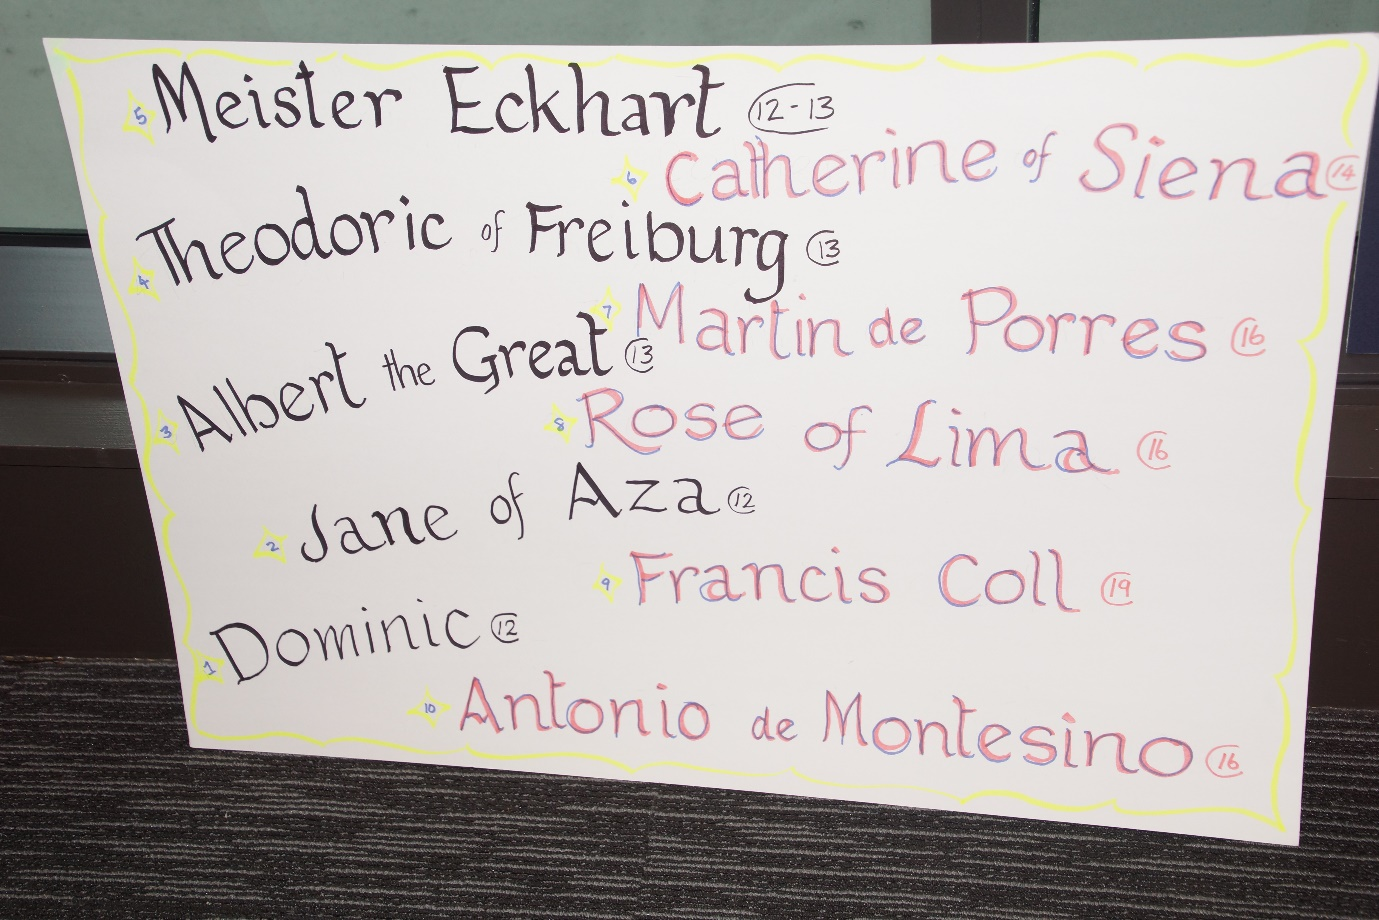 5 Meister Eckhart 12-13
6 Catherine of Siena 14
4 Theodoric of Freiburg 13
7 Martin de Porres 16
3 Albert the Great 13
8 Rose of Lima 16
2 Jane of Aza 12
9 Francis Coll 19
1 Dominic 12
10 Antonio de Montesino 16